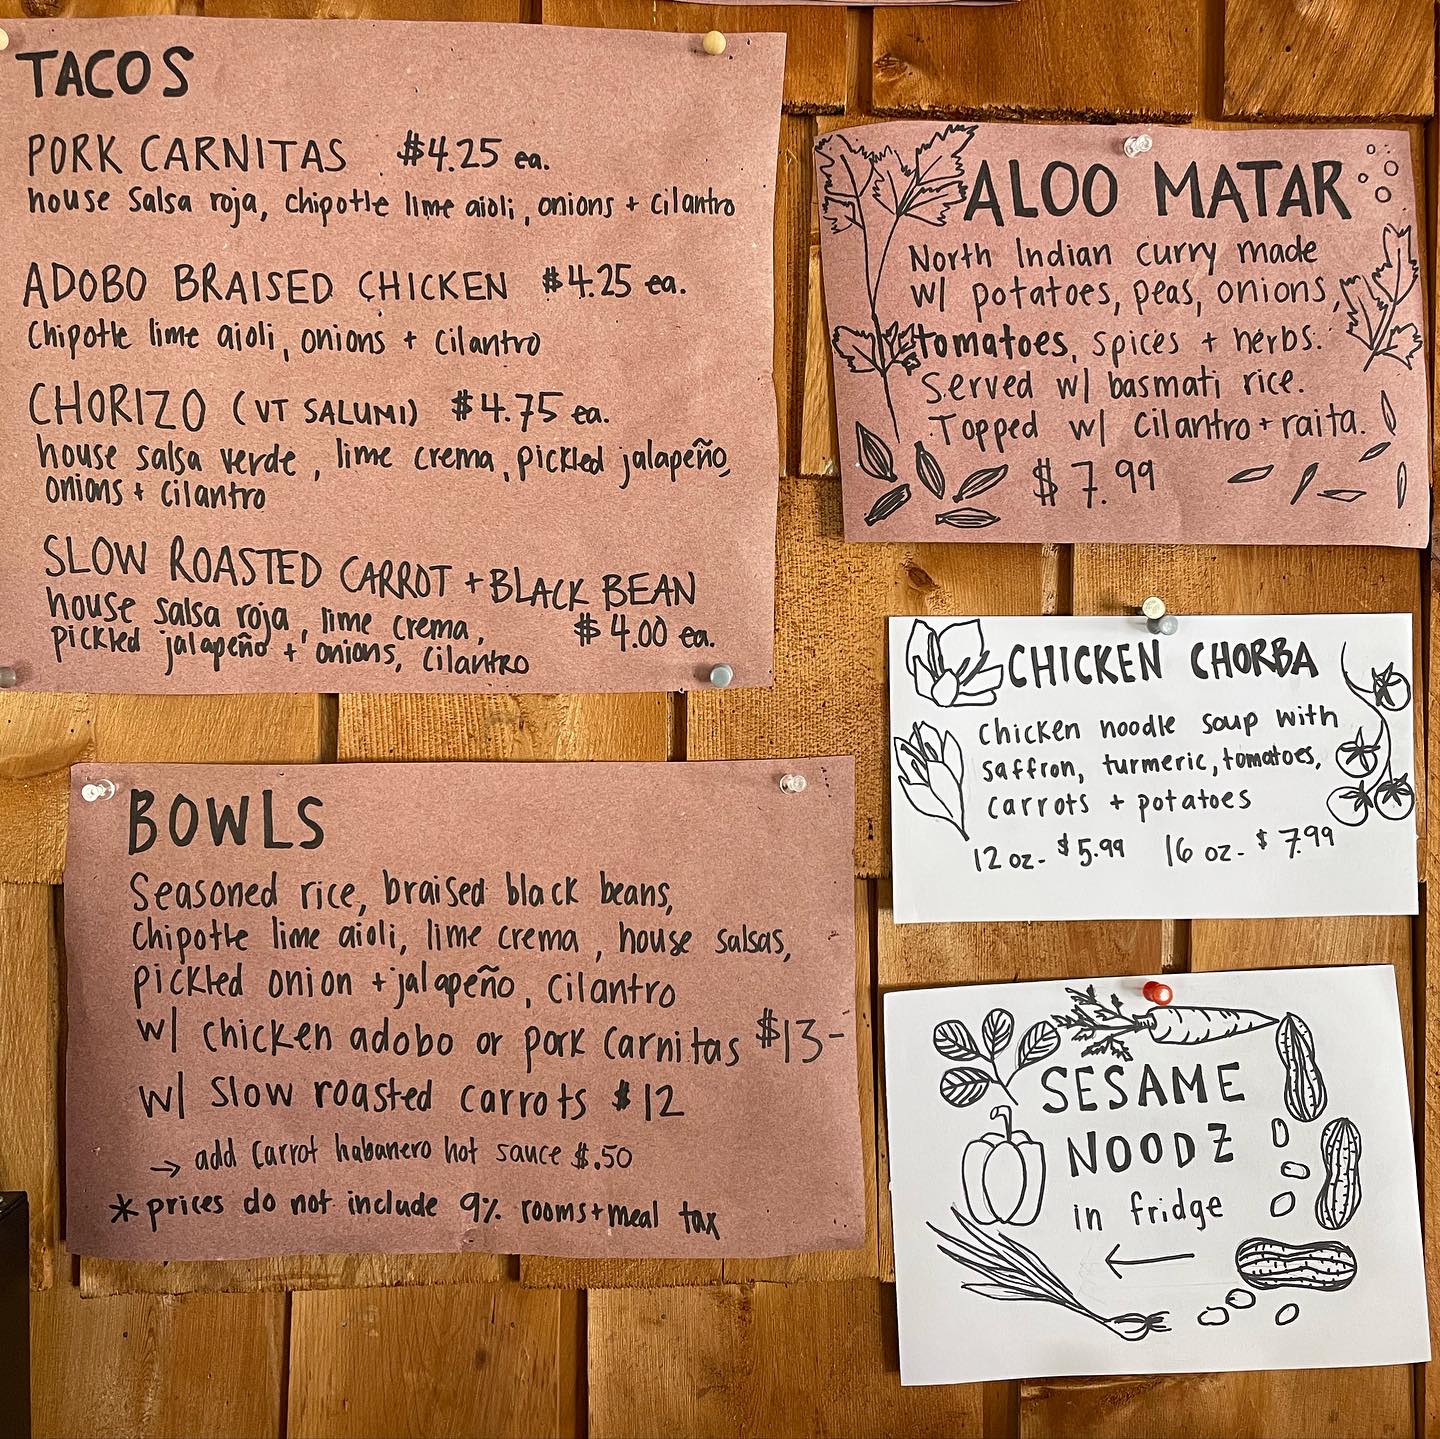 TACOS
PORK CARNITAS $4.25 ea.
house salsa roja, chipotle lime aioli, onions + cilantro
ADOBO BRAISED CHICKEN $4.25 ea.
Chipotle lime aioli, onions + cilantro
CHORIZO (VT SALUMI) $4.75 ea.
house salsa verde, lime crema, pickled jalapeño,
onions + cilantro
SLOW ROASTED CARROT + BLACK BEAN
house salsa roja, lime crema, $4.00 ea.
pickled jalapeño + onions, cilantro
BOWLS
Seasoned rice, braised black beans,
Chipotle lime aioli, lime crema, house salsas,
pickled onion + jalapeño, cilantro
w/ chicken adobo or pork carnitas $13-
w/ slow roasted carrots $12
→ add carrot habanero hot sauce $.50
* prices do not include 9% rooms + meal tax
ALOO MATAR
North Indian curry made
w/ potatoes, peas, onions,
tomatoes, spices + herbs.
Served w/ basmati rice.
Topped w/ cilantro + raita.
$7.99
CHICKEN CHORBA
Chicken noodle soup with
saffron, turmeric, tomatoes,
carrots + potatoes
12 oz- $5.99 16 oz- $7.99
SESAME
NOODZ
in fridge
←